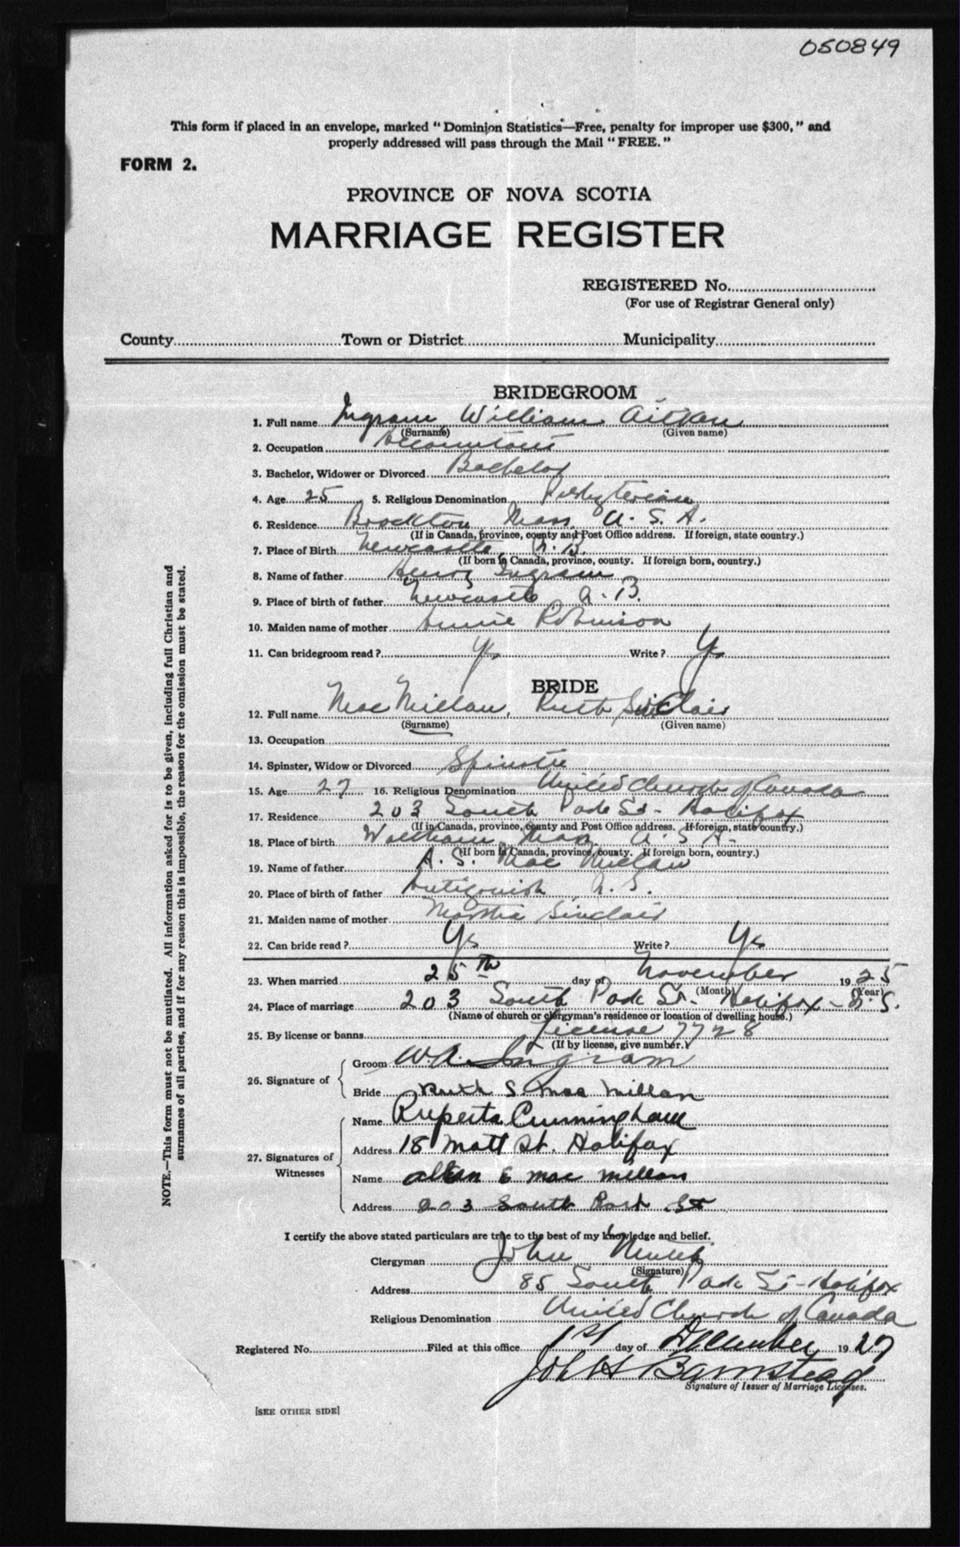 050849
This form if placed in an envelope, marked "Dominion Statistics—Free, penalty for improper use $300," and
properly addressed will pass through the Mail "FREE."
FORM 2.
PROVINCE OF NOVA SCOTIA
MARRIAGE REGISTER
REGISTERED No.
(For use of Registrar General only)
County Town or District Municipality
BRIDEGROOM
1. Full name Ingram William Aitken
(Surname) (Given name)
2. Occupation Accountant
3. Bachelor, Widower or Divorced Bachelor
4. Age 25 5. Religious Denomination Presbyterian
6. Residence Brockton Mass U.S.A.
(If in Canada, province, county and Post Office address. If foreign, state country.)
7. Place of Birth Newcastle N.B.
(If born in Canada, province, county. If foreign born, country.)
8. Name of father Henry Ingram
9. Place of birth of father Newcastle N.B.
10. Maiden name of mother Annie Robinson
11. Can bridegroom read? Yes Write? Yes
BRIDE
12. Full name MacMillan, Ruth Sinclair
(Surname) (Given name)
13. Occupation
14. Spinster, Widow or Divorced Spinster
15. Age 27 16. Religious Denomination United Church of Canada
17. Residence 203 South Park St. Halifax
(If in Canada, province, county and Post Office address. If foreign, state country.)
18. Place of birth Waltham, Mass. U.S.A.
(If born in Canada, province, county. If foreign born, country.)
19. Name of father A. S. MacMillan
20. Place of birth of father Antigonish N.S.
21. Maiden name of mother Martha Sinclair
22. Can bride read? Yes Write? Yes
23. When married 25th day of November 1925
(Month) (Year)
24. Place of marriage 203 South Park St. Halifax - N.S.
(Name of church or clergyman's residence or location of dwelling house.)
25. By license or banns License 7728
(If by license, give number.)
26. Signature of
Groom W.A. Ingram
Bride Ruth S MacMillan
27. Signatures of Witnesses
Name Cunningham
Address 18 St. Halifax
Name Allan E MacMillan
Address 203 South Park St
I certify the above stated particulars are true to the best of my knowledge and belief.
Clergyman John
(Signature)
Address 85 South Park St - Halifax
Religious Denomination United Church of Canada
Registered No. Filed at this office 1st day of December 1927
Barnstead
Signature of Issuer of Marriage Licenses.
[SEE OTHER SIDE]
NOTE.—This form must not be mutilated. All information asked for is to be given, including full Christian and
surnames of all parties, and if for any reason this is impossible, the reason for the omission must be stated.